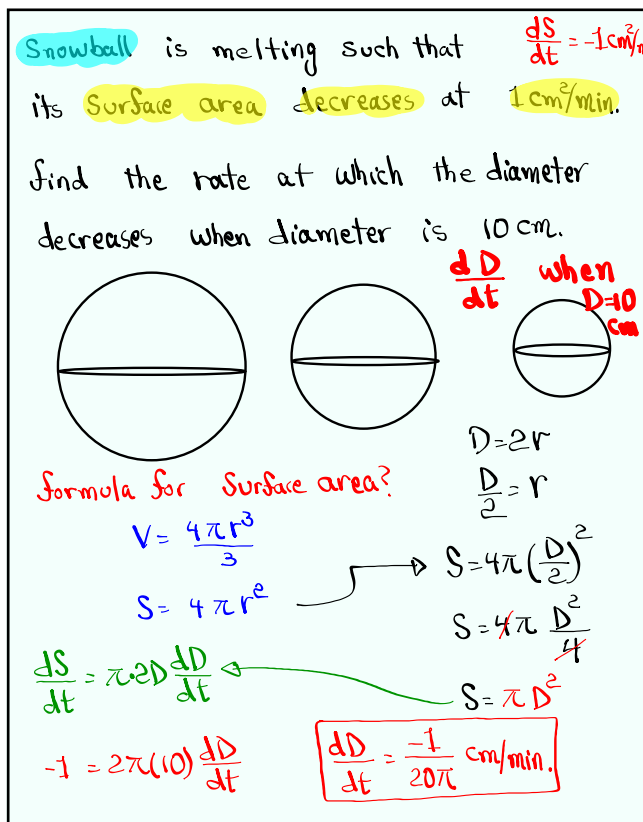 Snowball is melting such that
dS/dt = -1 cm²/m
its Surface area decreases at 1 cm²/min.
find the rate at which the diameter
decreases when diameter is 10 cm.
dD/dt when D=10 cm
D=2r
D/2 = r
formula for Surface area?
V= 4πr³/3
S= 4πr²
S=4π(D/2)²
S=4π D²/4
S=πD²
dS/dt = π·2D dD/dt
-1 = 2π(10) dD/dt
dD/dt = -1/20π cm/min.